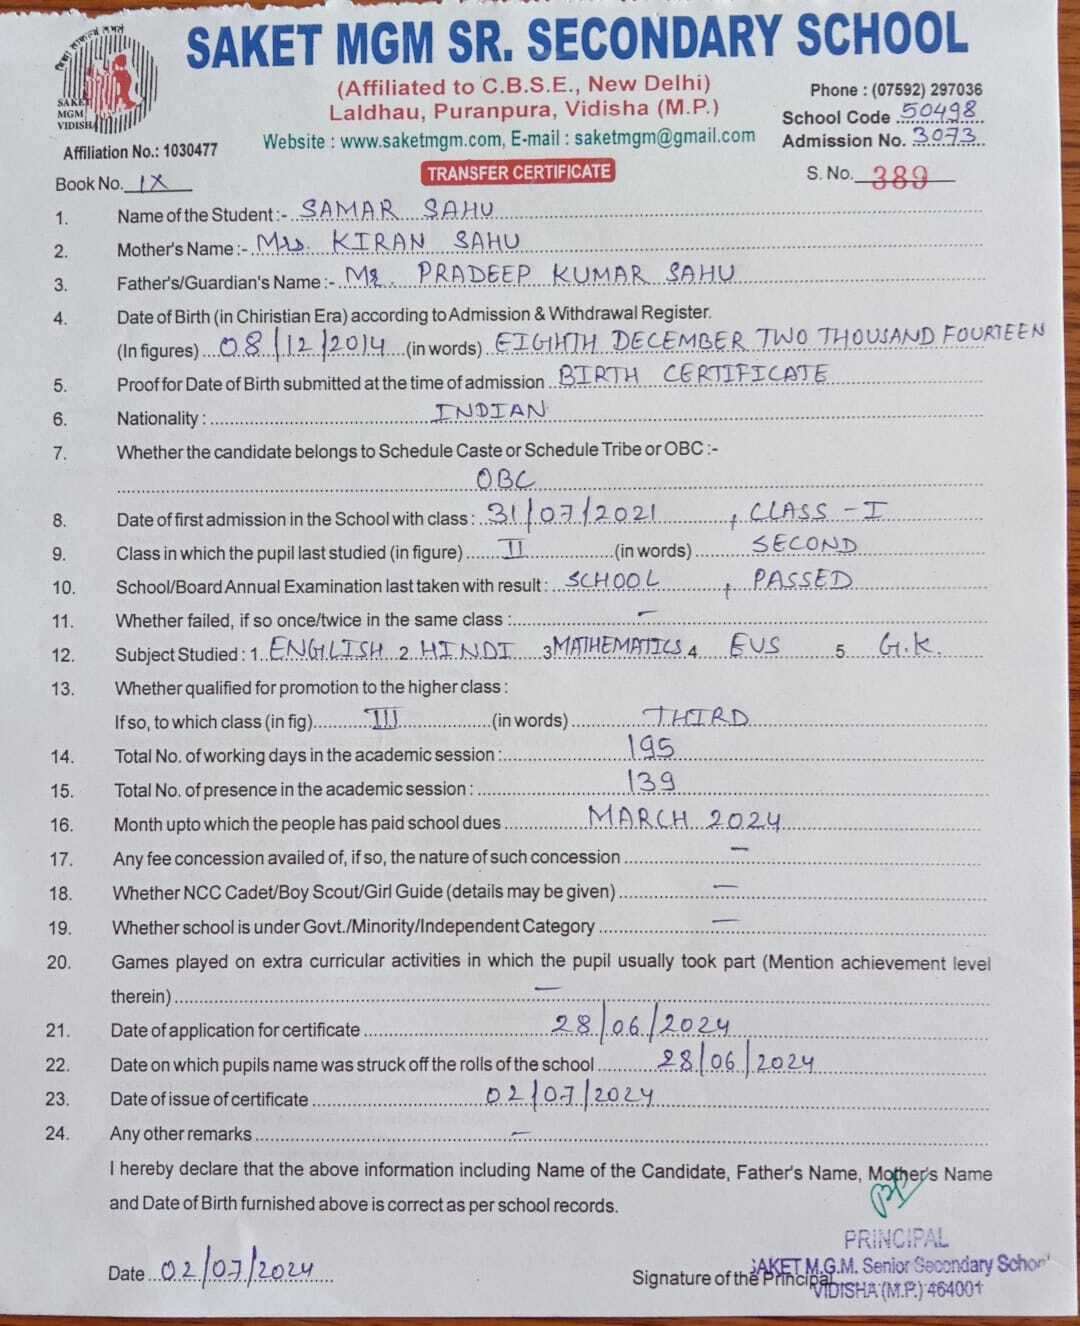 SAKET MGM SR. SECONDARY SCHOOL
(Affiliated to C.B.S.E., New Delhi)
Laldhau, Puranpura, Vidisha (M.P.)
Website : www.saketmgm.com, E-mail : saketmgm@gmail.com
SAKET
MGM
VIDISHA
Phone : (07592) 297036
School Code 50498
Admission No. 3073
Affiliation No.: 1030477
Book No. IX
TRANSFER CERTIFICATE
S. No. 389
1. Name of the Student :- SAMAR SAHU
2. Mother's Name :- Mrs. KIRAN SAHU
3. Father's/Guardian's Name :- Mr. PRADEEP KUMAR SAHU
4. Date of Birth (in Chiristian Era) according to Admission & Withdrawal Register.
(In figures) 08/12/2014 (in words) EIGHTH DECEMBER TWO THOUSAND FOURTEEN
5. Proof for Date of Birth submitted at the time of admission BIRTH CERTIFICATE
6. Nationality : INDIAN
7. Whether the candidate belongs to Schedule Caste or Schedule Tribe or OBC :-
OBC
8. Date of first admission in the School with class : 31/07/2021, CLASS - I
9. Class in which the pupil last studied (in figure) II (in words) SECOND
10. School/Board Annual Examination last taken with result : SCHOOL, PASSED
11. Whether failed, if so once/twice in the same class : -
12. Subject Studied : 1 ENGLISH 2 HINDI 3 MATHEMATICS 4 EVS 5 G.K.
13. Whether qualified for promotion to the higher class :
If so, to which class (in fig) III (in words) THIRD
14. Total No. of working days in the academic session : 195
15. Total No. of presence in the academic session : 139
16. Month upto which the people has paid school dues MARCH 2024
17. Any fee concession availed of, if so, the nature of such concession -
18. Whether NCC Cadet/Boy Scout/Girl Guide (details may be given) -
19. Whether school is under Govt./Minority/Independent Category -
20. Games played on extra curricular activities in which the pupil usually took part (Mention achievement level
therein) -
21. Date of application for certificate 28/06/2024
22. Date on which pupils name was struck off the rolls of the school 28/06/2024
23. Date of issue of certificate 02/07/2024
24. Any other remarks -
I hereby declare that the above information including Name of the Candidate, Father's Name, Mother's Name
and Date of Birth furnished above is correct as per school records.
PRINCIPAL
SAKET M.G.M. Senior Secondary School
VIDISHA (M.P.) 464001
Date 02/07/2024
Signature of the Principal